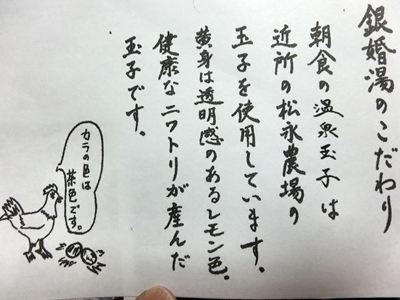 銀婚湯のこだわり
朝食の温泉玉子は
近所の松永農場の
玉子を使用しています。
黄身は透明感のあるレモン色。
健康なニワトリが産んだ
玉子です。
カラの色は
茶色です。